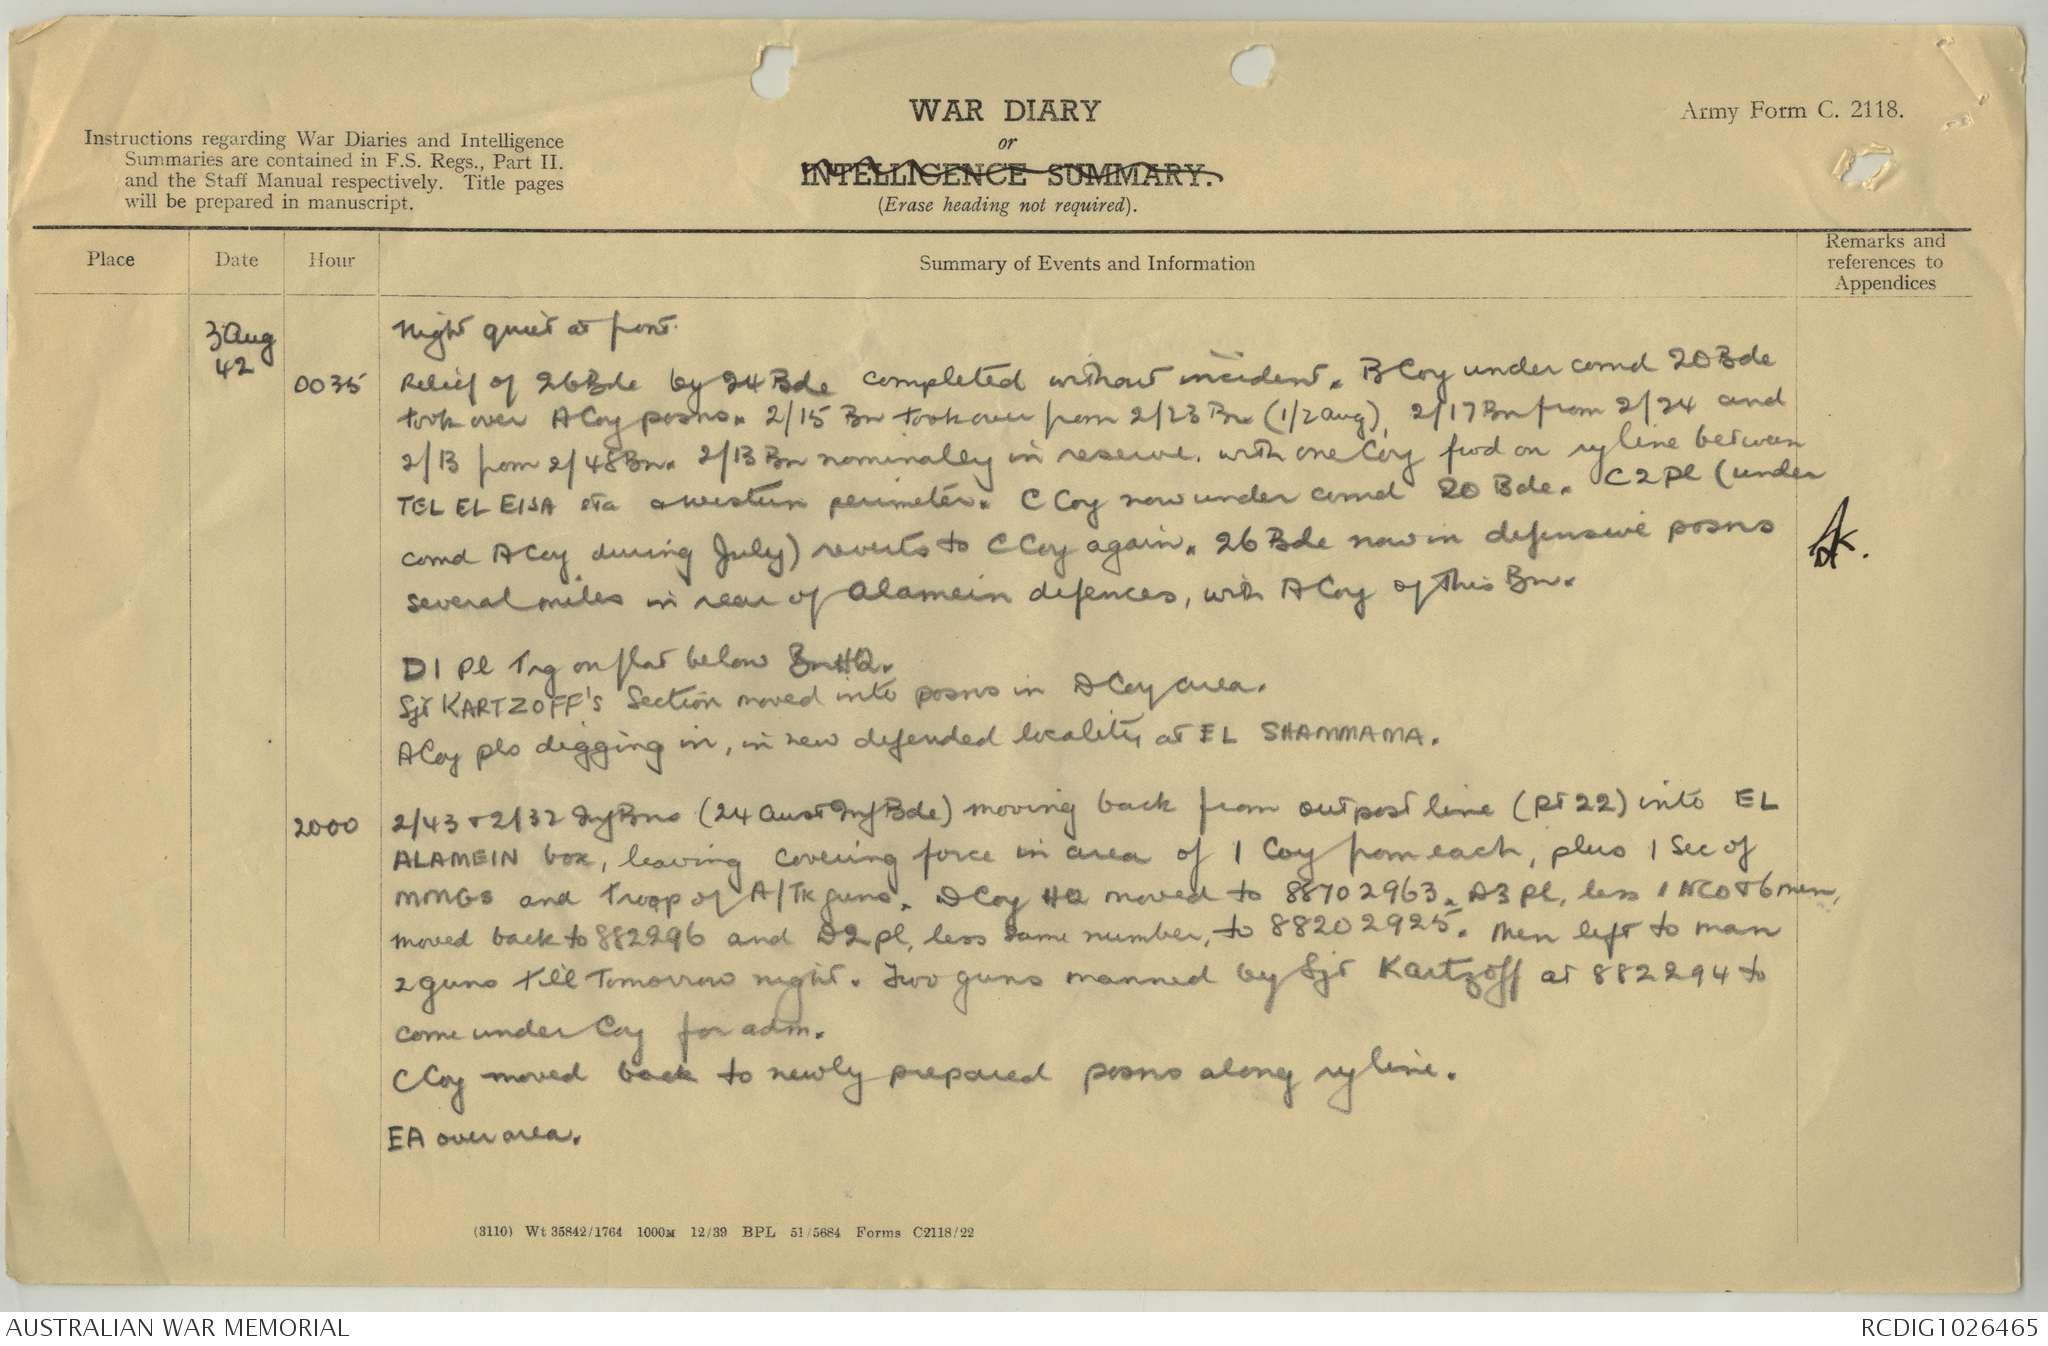 WAR DIARY
or
INTELLIGENCE SUMMARY.
(Erase heading not required).
Army Form C. 2118.
Instructions regarding War Diaries and Intelligence
Summaries are contained in F.S. Regs., Part II.
and the Staff Manual respectively. Title pages
will be prepared in manuscript.
Place
Date
Hour
Summary of Events and Information
Remarks and
references to
Appendices
3 Aug
42
Night quiet at front.
0035
Relief of 26 Bde by 24 Bde completed without incident. B Coy under comd 20 Bde
took over A Coy posns. 2/15 Bn took over from 2/23 Bn (1/2 Aug), 2/17 Bn from 2/24 and
2/13 from 2/48 Bn. 2/13 Bn nominally in reserve. with one Coy fwd on ry line between
TEL EL EISA sta & western perimeter. C Coy now under comd 20 Bde. C2 Pl (under
comd A Coy during July) reverts to C Coy again. 26 Bde now in defensive posns
several miles in rear of Alamein defences, with A Coy of this Bn.
D1 Pl Trg on flat below Bn HQ.
Sjt KARTZOFF's Section moved into posns in D Coy area.
A Coy pls digging in, in new defended locality at EL SHAMMAMA.
2000
2/43 & 2/32 Inf Bns (24 Aust Inf Bde) moving back from outpost line (pt 22) into EL
ALAMEIN box, leaving covering force in area of 1 Coy from each, plus 1 Sec of
MMGs and Troop of A/Tk guns. D Coy HQ moved to 88702963. D3 Pl, less 1 NCO & 6 men,
moved back to 882296 and D2 pl, less same number, to 88202925. Men left to man
2 guns till tomorrow night. Two guns manned by Sjt Kartzoff at 882294 to
come under Coy for adm.
C Coy moved back to newly prepared posns along ry line.
EA over area.
(3110) Wt 35842/1764 1000M 12/39 BPL 51/5684 Forms C2118/22
AUSTRALIAN WAR MEMORIAL
RCDIG1026465